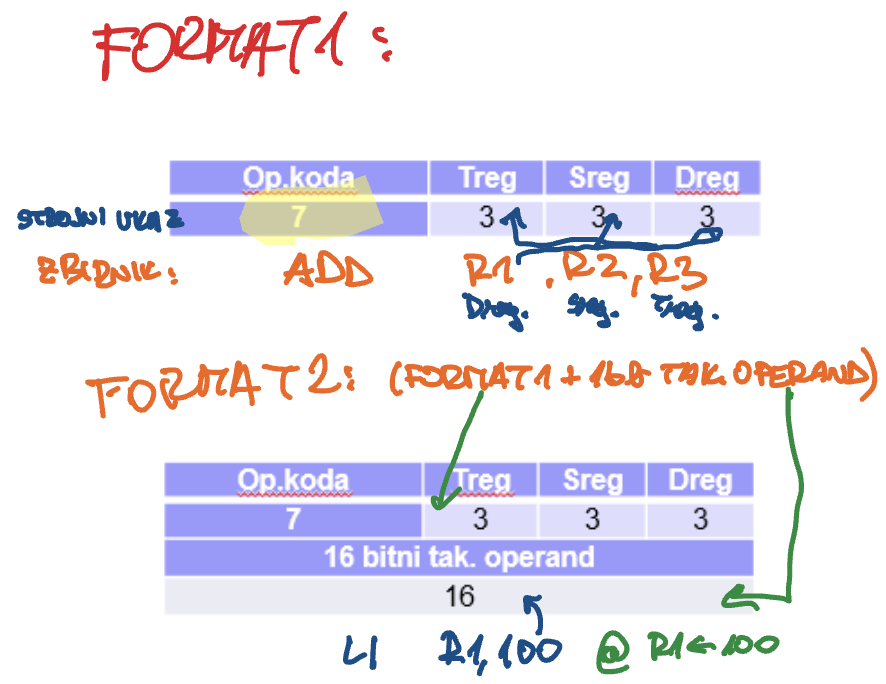 FORMAT1:
Op.koda Treg Sreg Dreg
STROJNI UKAZ 7 3 3 3
ZBIRNIK: ADD R1, R2, R3
Dreg. Sreg. Treg.
FORMAT2: (FORMAT1 + 16b TAK. OPERAND)
Op.koda Treg Sreg Dreg
7 3 3 3
16 bitni tak. operand
16
LI R1, 100 @ R1←100